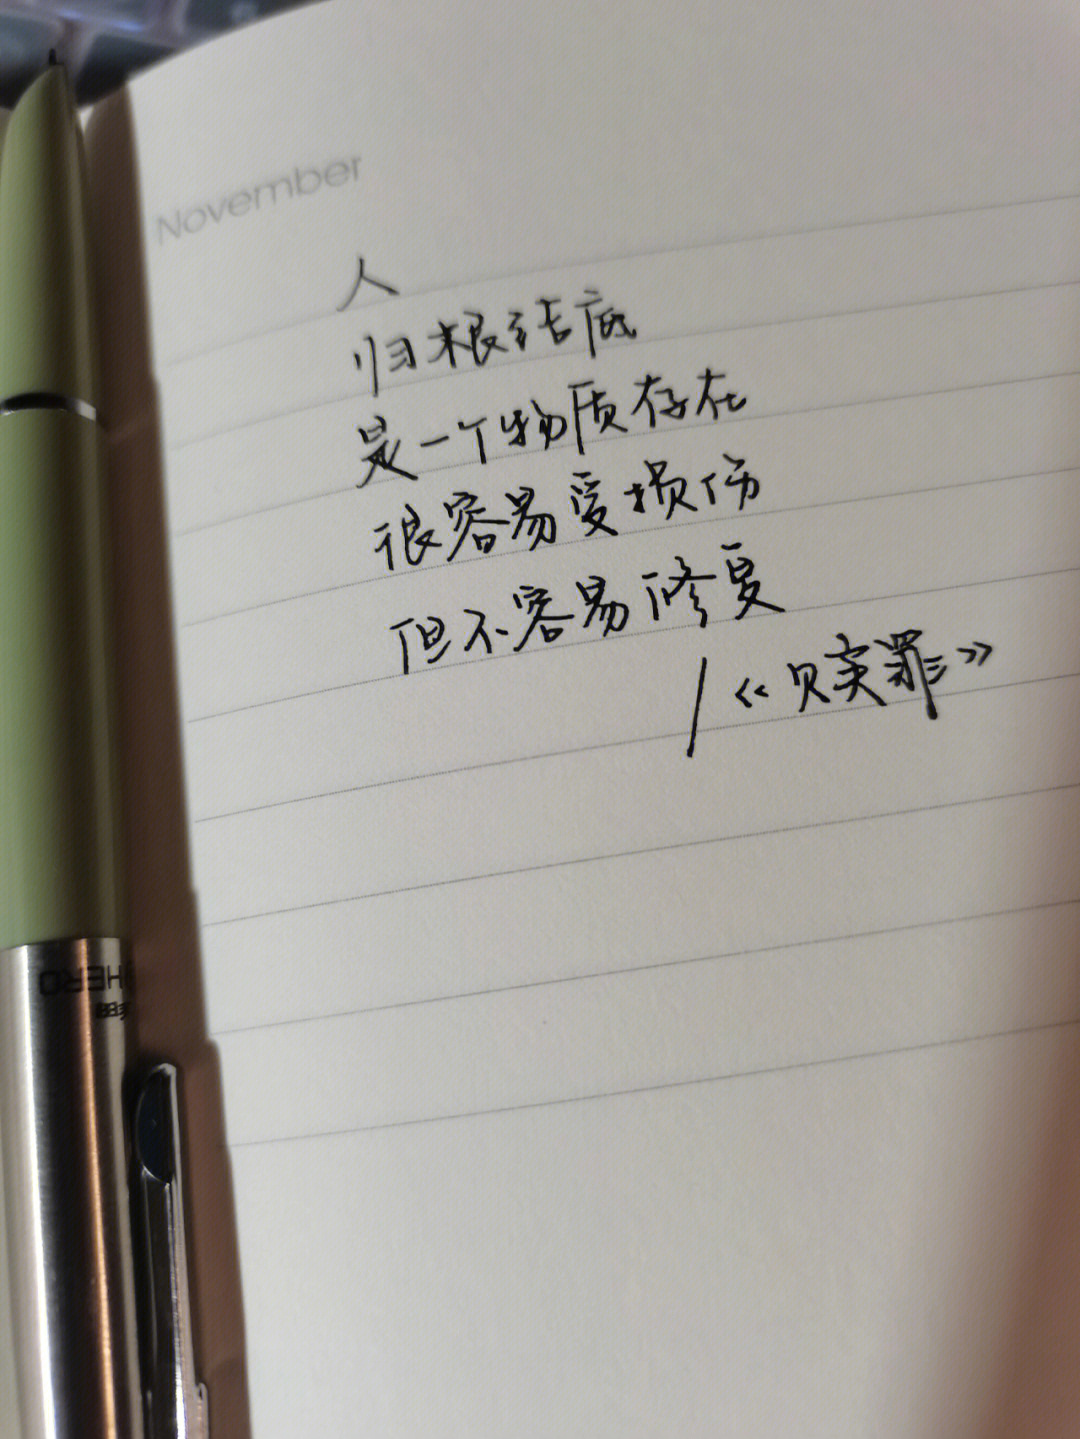 November
人
归根结底
是一个物质存在
很容易受损伤
但不容易修复
/《赎罪》
HERO